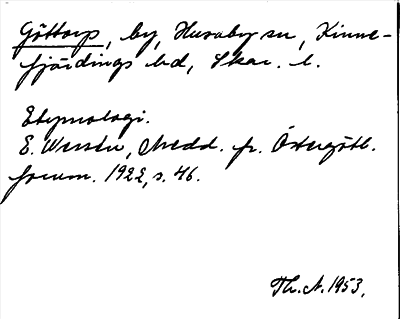 Göttorp, by, Husaby sn, Kinne-
fjärdings hd, Skar. l.
Etymologi.
E. Wessén, Medd. fr. Östergötl.
fornm. 1922, s. 46.
Th. N. 1953.